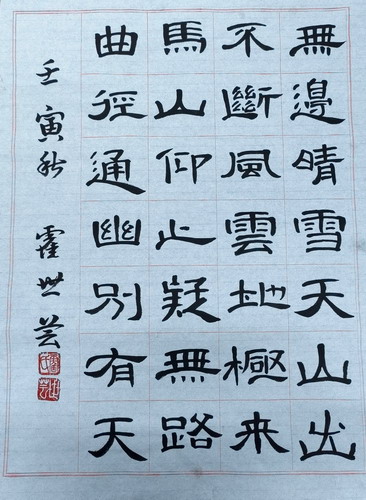 無邊晴雪天山出
不斷風雲地極来
馬山仰止疑無路
曲徑通幽別有天
壬寅秋 霍世芸